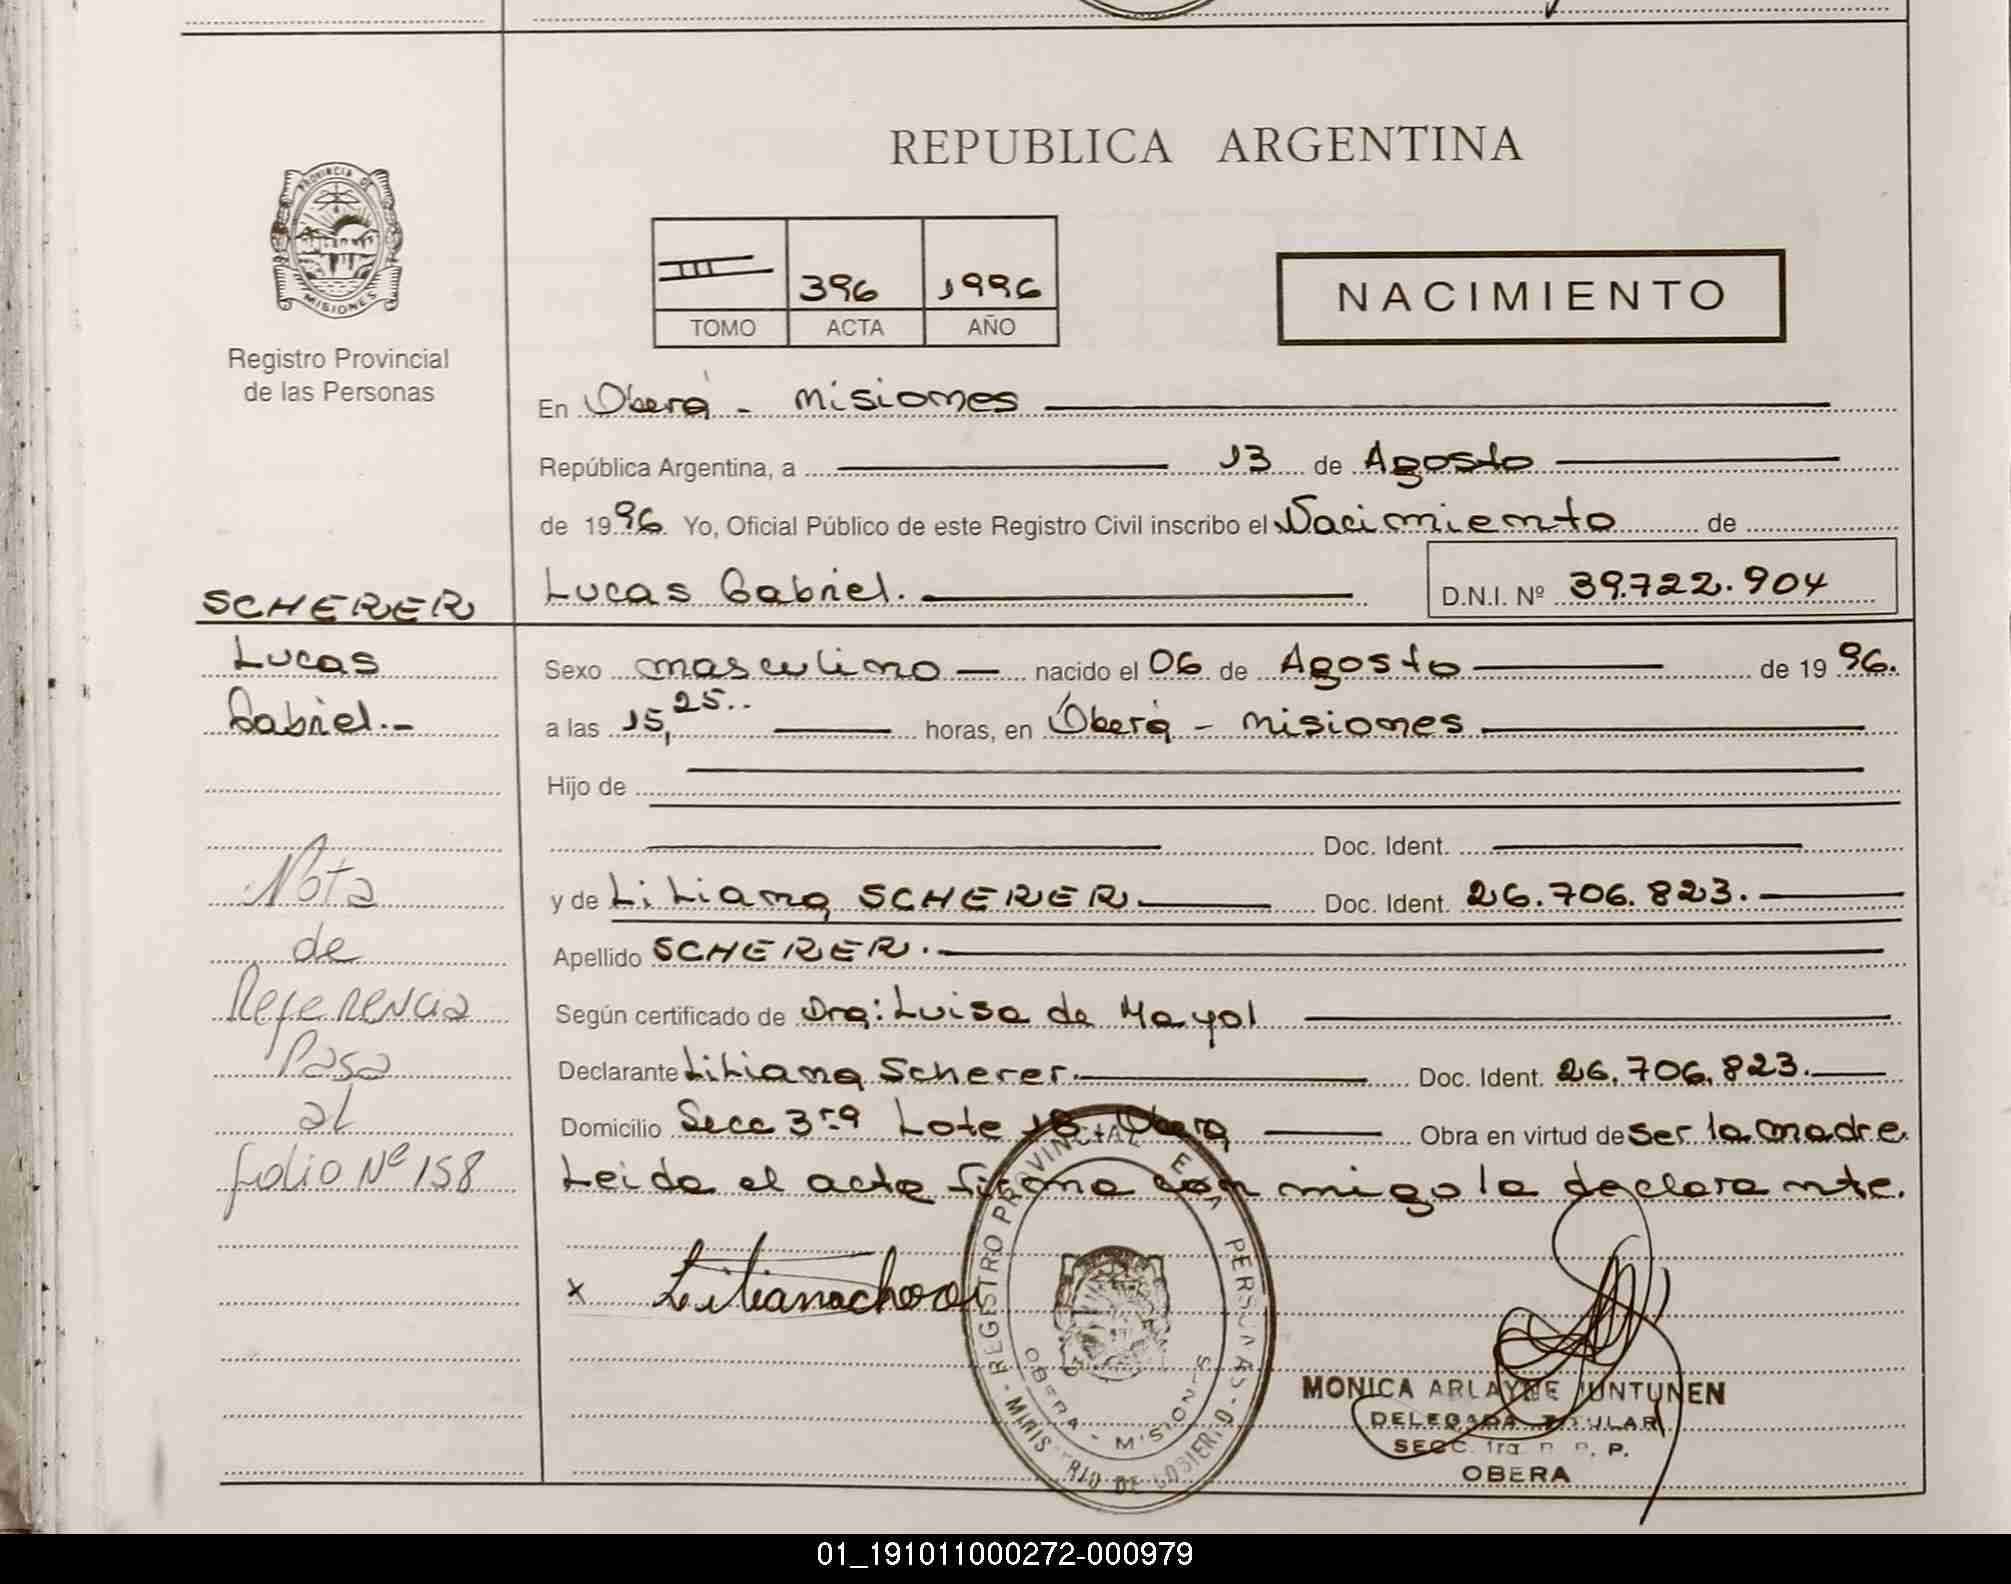 REPUBLICA ARGENTINA
PROVINCIA DE
MISIONES
Registro Provincial
de las Personas
396 1996
TOMO ACTA AÑO
NACIMIENTO
En Oberá - Misiones
República Argentina, a 13 de Agosto
de 1996. Yo, Oficial Público de este Registro Civil inscribo el Nacimiento de
Lucas Gabriel. D.N.I. Nº 39.722.904
SCHERER
Lucas
Gabriel.-
Sexo masculino nacido el 06 de Agosto de 1996.
a las 15,25.. horas, en Oberá - Misiones
Hijo de
Doc. Ident.
y de Liliana SCHERER. Doc. Ident. 26.706.823.
Apellido SCHERER.
Según certificado de Dra: Luisa de Mayol
Declarante Liliana Scherer. Doc. Ident. 26.706.823.
Domicilio Secc 3ra Lote 18 Oberá Obra en virtud de ser la madre.
Leida el acta firma con migo la declarante.
Nota
de
Referencia
Pasa
al
folio Nº 158
x
REGISTRO PROVINCIAL PERSONAS - MINISTERIO DE GOBIERNO -
OBERA - MISIONES
MONICA ARLAYNE JUNTUNEN
DELEGADA TITULAR
SECC. 1ra. P.
OBERA
01_191011000272-000979